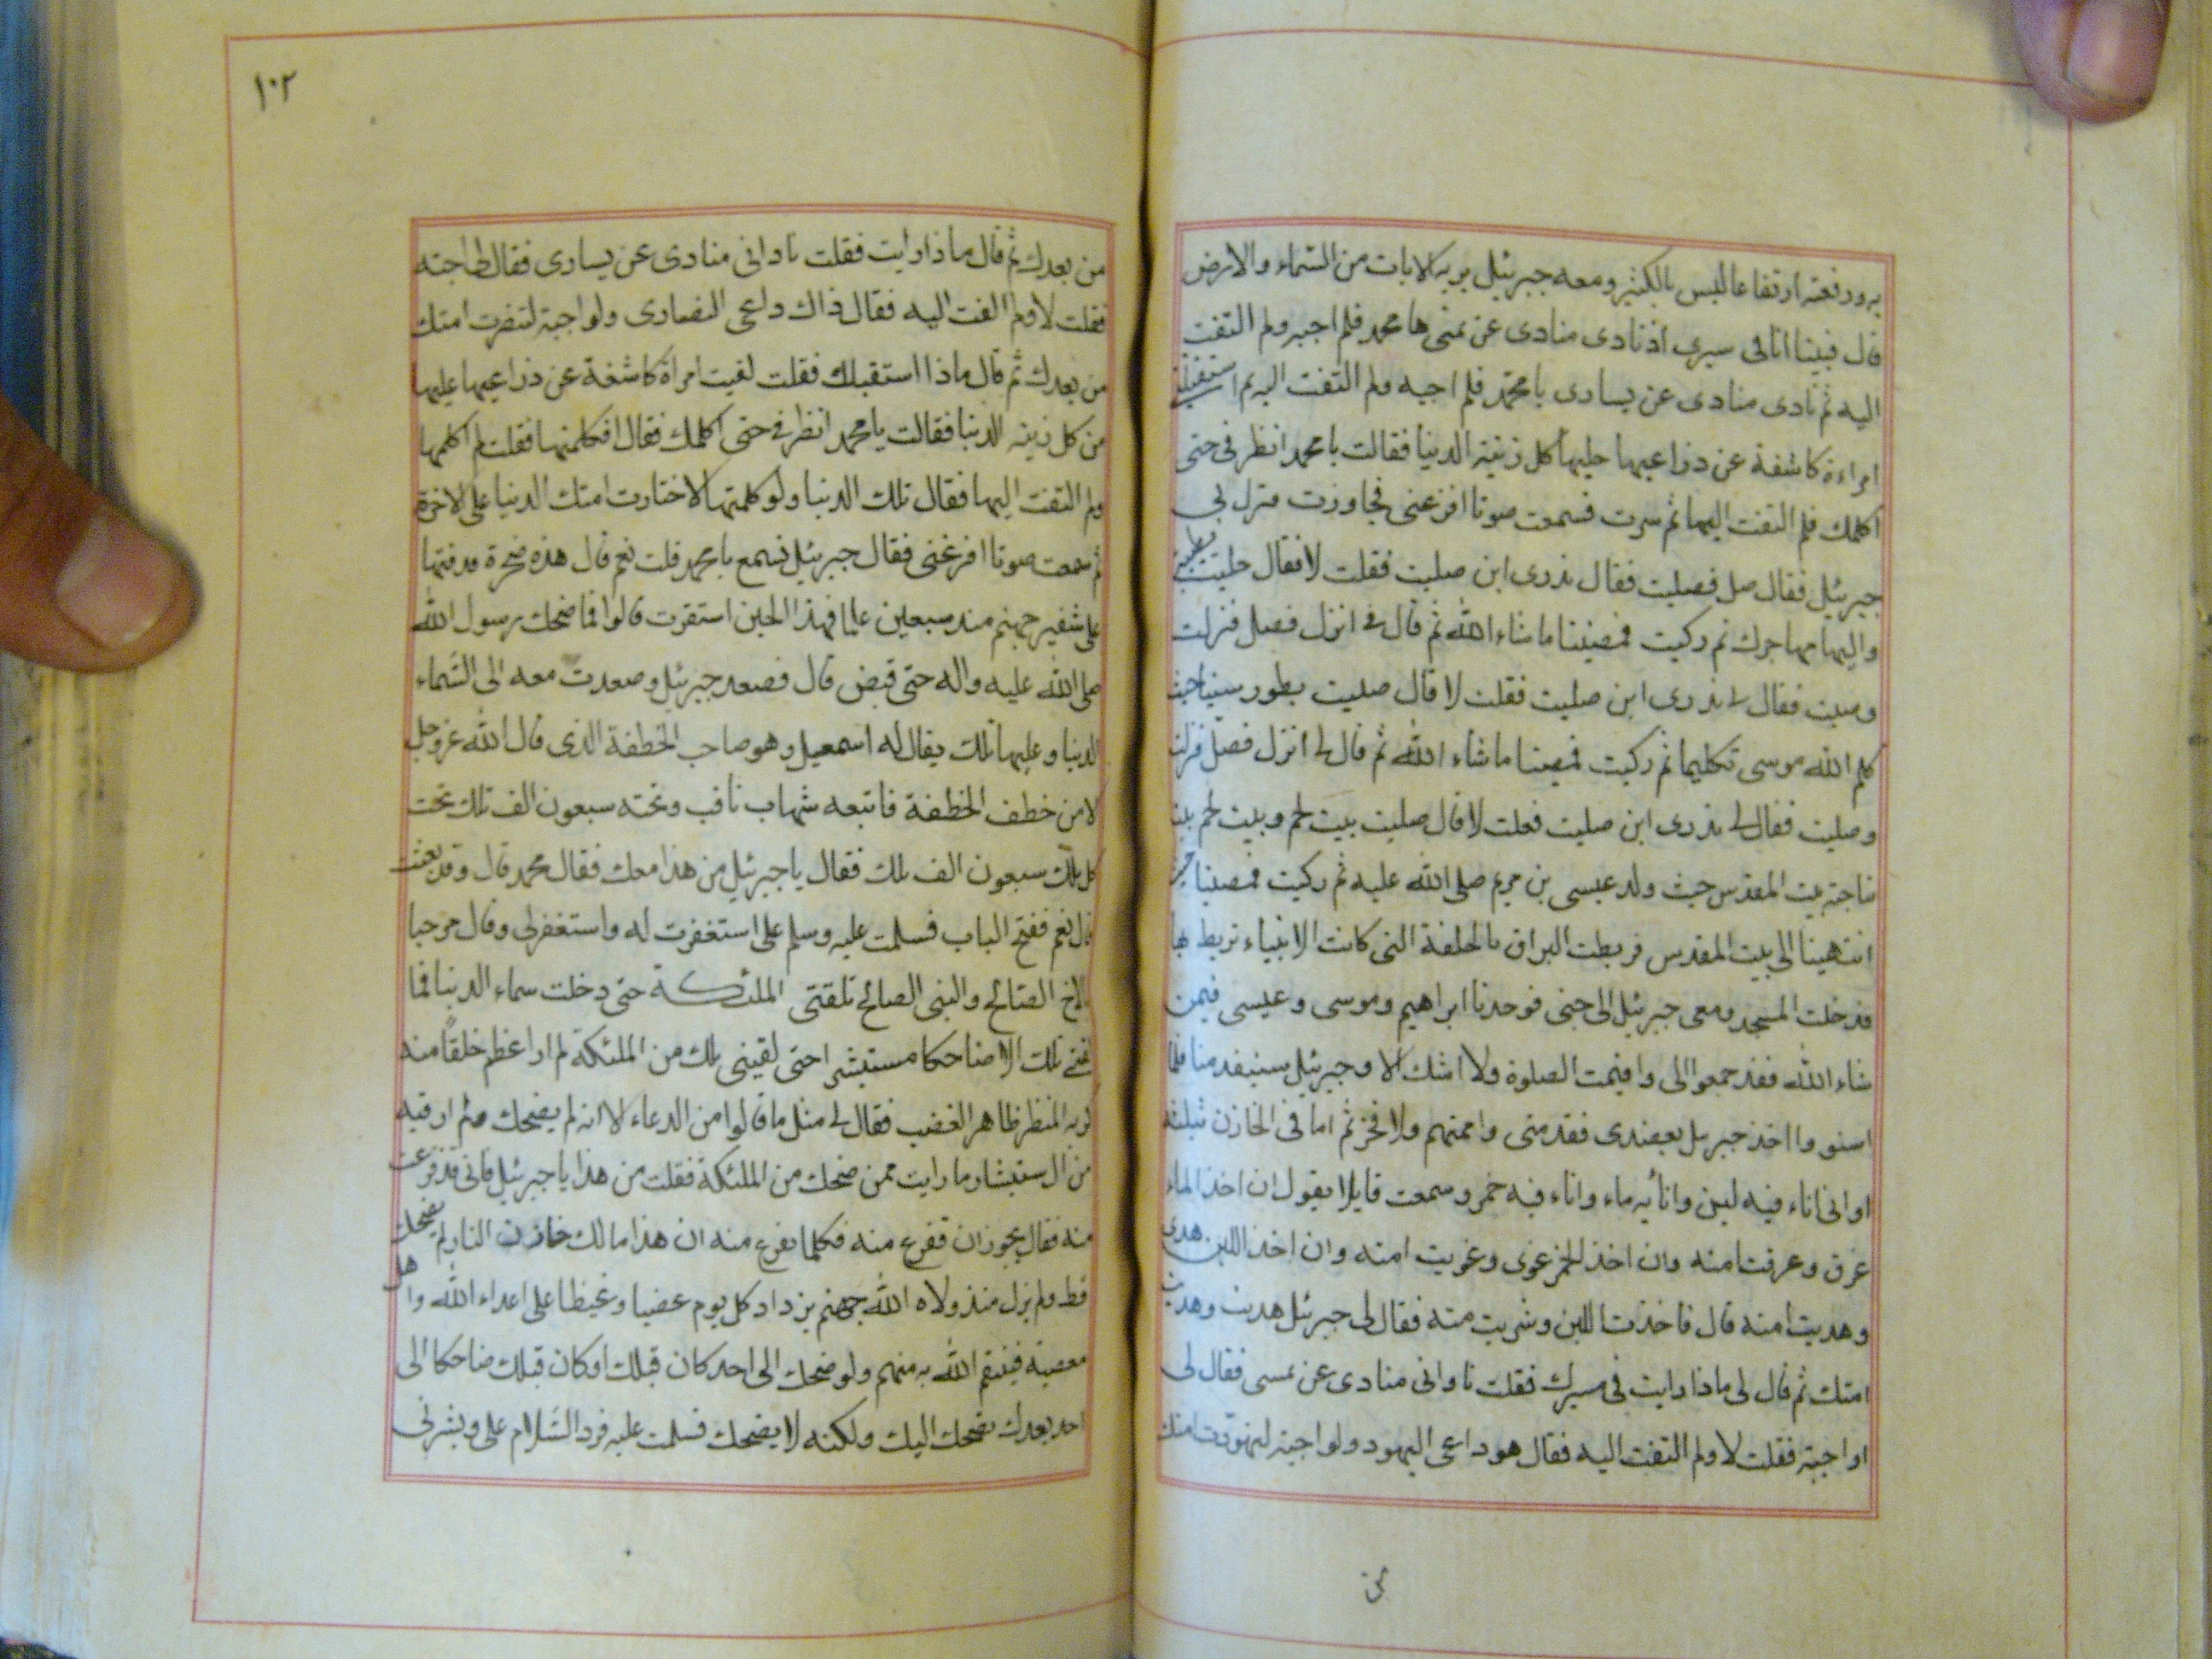 به ورفعته ارتفاعا ليس بالكثير ومعه جبرئيل يريه الايات من السماء والارض
قال فبينا انا فى سيرى اذ نادى منادى عن يمينى يا محمد فلم اجبه ولم التفت
اليه ثم نادى منادى عن يسارى يا محمد فلم اجبه ولم التفت اليه ثم استقبلتنى
امراءة كاشفة عن ذراعيها عليها كل زينة الدنيا فقالت يا محمد انظرنى حتى
اكلمك فلم التفت اليها ثم سرت فسمعت صوتا افزعنى فجاوزت فنزل بى
جبرئيل فقال صل فصليت فقال تدرى اين صليت فقلت لا فقال صليت بطيبة
واليها مهاجرك ثم ركبت فمضينا ما شاء الله ثم قال لى انزل فصل فنزلت
وصليت فقال لى تدرى اين صليت فقلت لا قال صليت بطور سينا حيث
كلم الله موسى تكليما ثم ركبت فمضينا ما شاء الله ثم قال لى انزل فصل فنزلت
وصليت فقال لى تدرى اين صليت فقلت لا قال صليت بيت لحم وبيت لحم
بناحية بيت المقدس حيث ولد عيسى بن مريم صلى الله عليه ثم ركبت فمضينا حتى
انتهينا الى بيت المقدس فربطت البراق بالحلقة التى كانت الانبياء تربط بها
فدخلت المسجد ومعى جبرئيل الى جنبى فوجدنا ابراهيم وموسى وعيسى فيمن
شاء الله فقد جمعوا الى واقيمت الصلوة ولا اشك الا وجبرئيل سيتقدمنا فلما
استووا اخذ جبرئيل بعضدى فقدمنى واممتهم ولا فخر ثم اتانى الخازن بثلثة
اوانى اناء فيه لبن واناء فيه ماء واناء فيه خمر وسمعت قايلا يقول ان اخذ الماء
غرق وغرقت امته وان اخذ الخمر غوى وغويت امته وان اخذ اللبن هدى
وهديت امته قال فاخذت اللبن وشربت منه فقال لى جبرئيل هديت وهديت
امتك ثم قال لى ماذا رايت فى مسيرك فقلت نادانى منادى عن يمينى فقال لى
او اجبته فقلت لا ولم التفت اليه فقال هو داعى اليهود ولو اجبته لتهودت امتك
١٠٢
من بعدك ثم قال ماذا رايت فقلت نادانى منادى عن يسارى فقال لى اجبته
فقلت لا ولم التفت اليه فقال ذاك داعى النصارى ولو اجبته لتنصرت امتك
من بعدك ثم قال ماذا استقبلك فقلت لقيت امراة كاشفة عن ذراعيها عليها
من كل زينة الدنيا فقالت يا محمد انظرنى حتى اكلمك فقال افكلمتها فقلت لم اكلمها
ولم التفت اليها فقال تلك الدنيا ولو كلمتها لاختارت امتك الدنيا على الاخرة
ثم سمعت صوتا افزعنى فقال جبرئيل تسمع يا محمد قلت نعم قال هذه صخرة قذفتها
على شفير جهنم منذ سبعين عاما فهذا الحين استقرت قالوا فما ضحك رسول الله
صلى الله عليه واله حتى قبض قال فصعد جبرئيل وصعدت معه الى السماء
الدنيا وعليها ملك يقال له اسمعيل وهو صاحب الخطفة الذى قال الله عز وجل
الا من خطف الخطفة فاتبعه شهاب ثاقب وتحته سبعون الف ملك تحت
كل ملك سبعون الف ملك فقال يا جبرئيل من هذا معك فقال محمد قال وقد بعث
قال نعم ففتح الباب فسلمت عليه وسلم على استغفرت له واستغفر لى وقال مرحبا
بالاخ الصالح والنبى الصالح تلقتنى الملئكة حتى دخلت سماء الدنيا فما
لقينى ملك الا ضاحكا مستبشرا حتى لقينى ملك من الملئكة لم ار اعظم خلقا منه
كريه المنظر ظاهر الغضب فقال لى مثل ما قالوا من الدعاء الا انه لم يضحك ولم ار فيه
من الاستبشار ما رايت ممن ضحك من الملئكة فقلت من هذا يا جبرئيل فانى قد فزعت
منه فقال يجوز ان تفزع منه فكلنا نفزع منه ان هذا مالك خازن النار لم يضحك
قط ولم يزل منذ ولاه الله جهنم يزداد كل يوم غضبا وغيظا على اعداء الله واهل
معصيته فينتقم الله به منهم ولو ضحك الى احد كان قبلك او كان قبلك ضاحكا الى
احد بعدك لضحك اليك ولكنه لا يضحك فسلمت عليه فرد السلام على وبشرنى